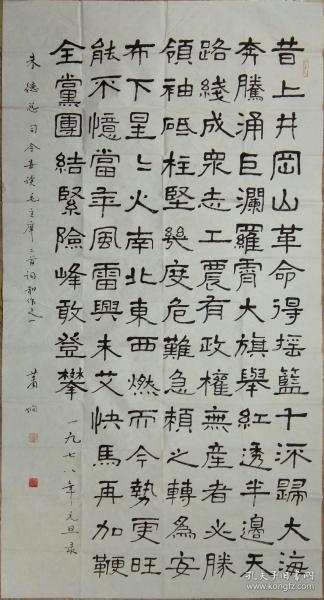 昔上井岡山革命得搖籃千流歸大海
奔騰涌巨瀾羅霄大旗舉紅透半邊天
路綫成衆志工農有政權無產者必勝
領袖砥柱堅幾度危難急賴之轉為安
布下星〻火南北東西燃而今勢更旺
能不憶當年風雷興未艾快馬再加鞭
全黨團結緊險峰敢登攀
一九七八年元旦录
朱德總司令喜读毛主席二首词和作之一 蕭娴
孔夫子旧书网